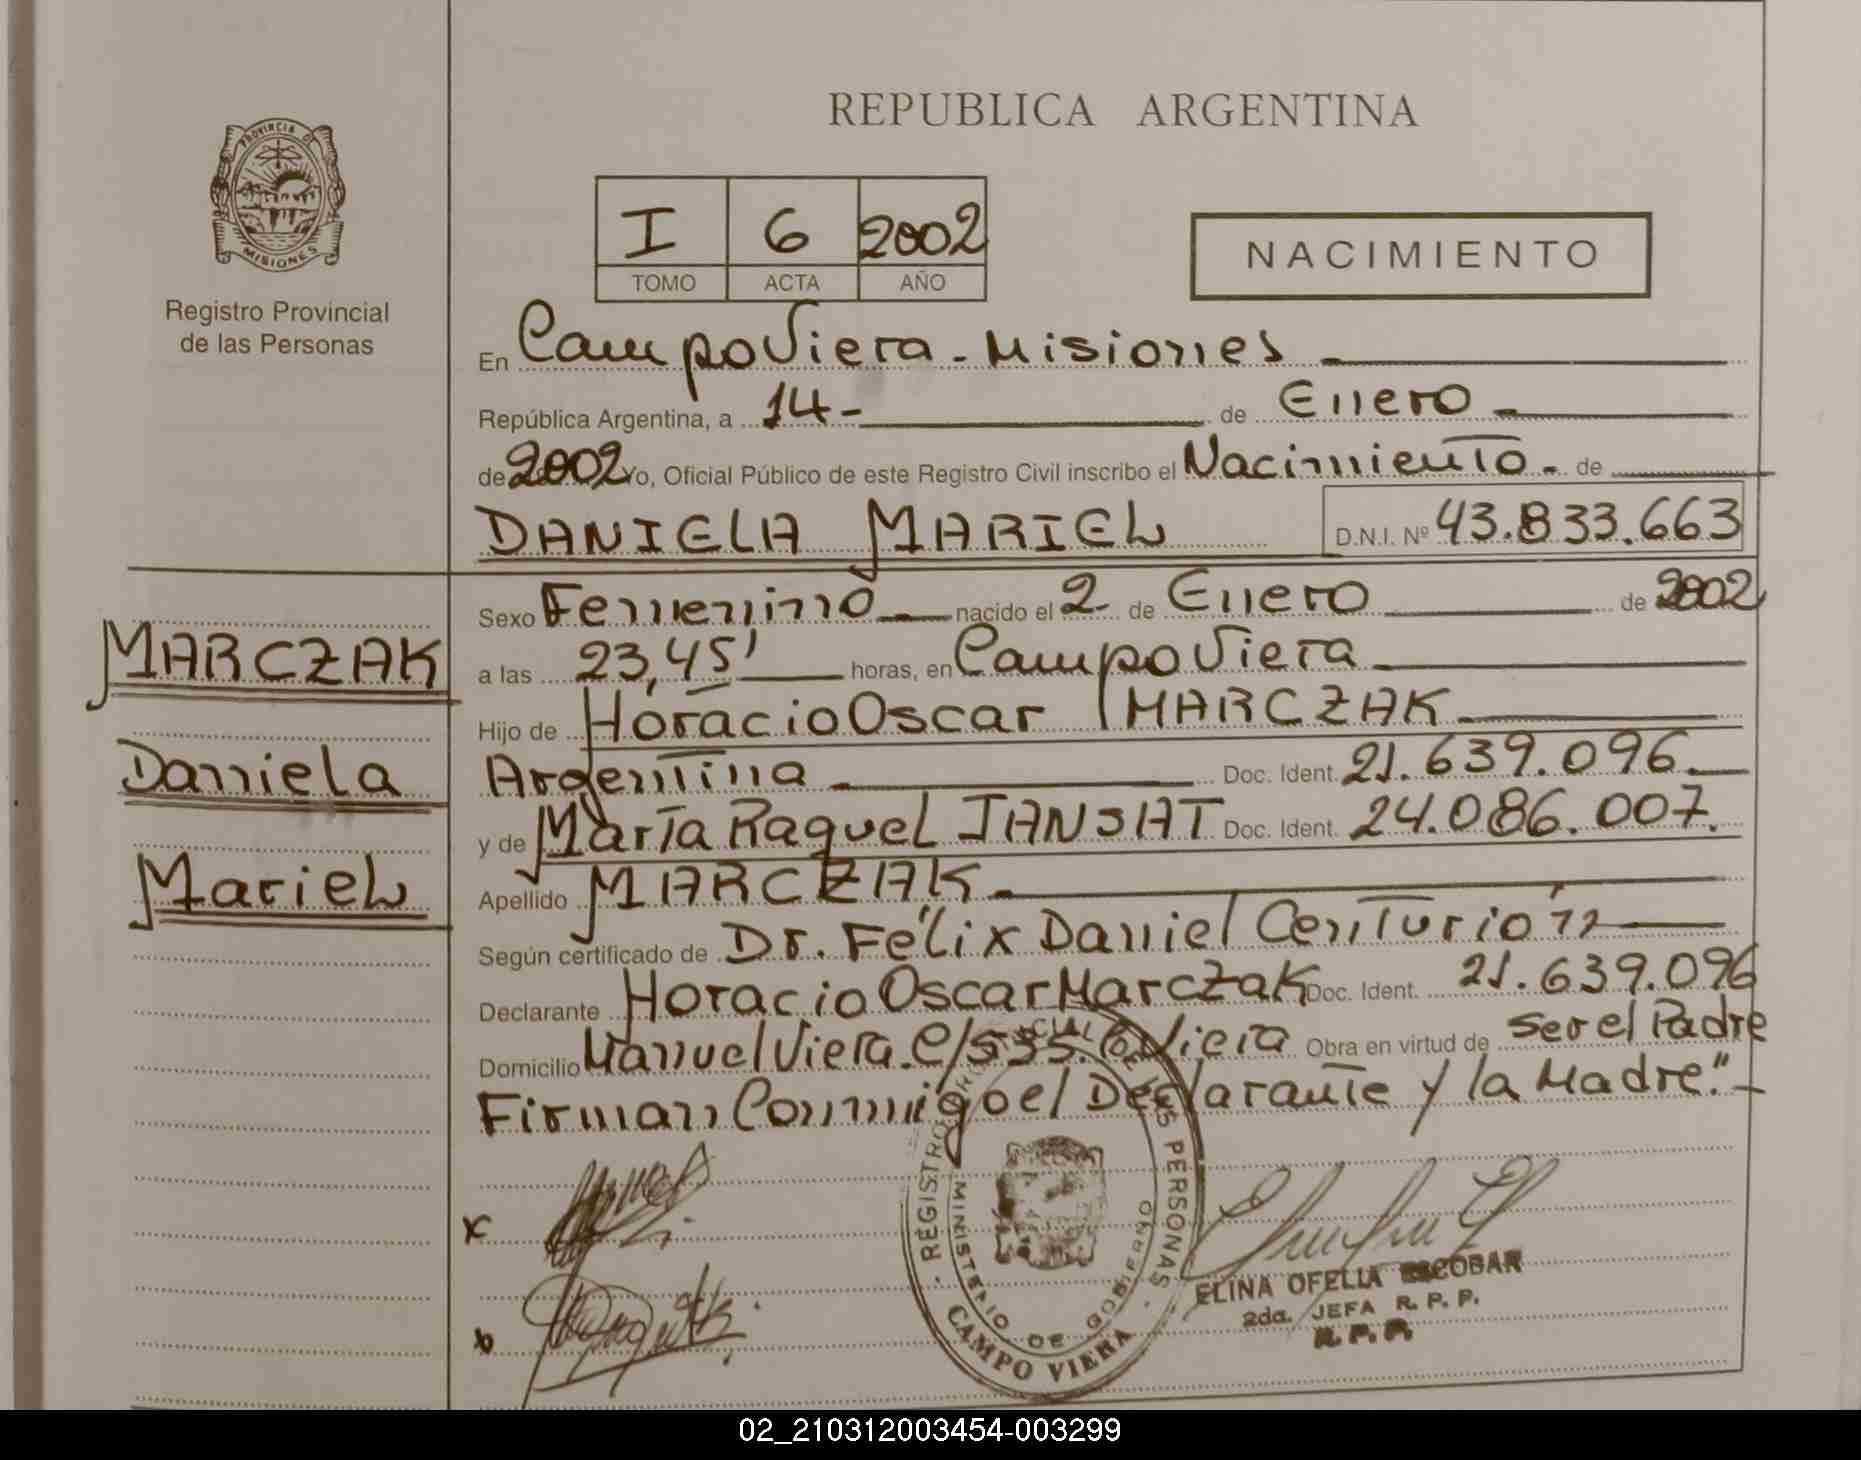 PROVINCIA DE
MISIONES
Registro Provincial
de las Personas
REPUBLICA ARGENTINA
I 6 2002
TOMO ACTA AÑO
NACIMIENTO
En Campo Viera - Misiones
República Argentina, a 14 - de Enero -
de 2002 Yo, Oficial Público de este Registro Civil inscribo el Nacimiento - de
DANIELA MARIEL D.N.I. Nº 43.833.663
Sexo Femenino nacido el 2 de Enero de 2002
a las 23,45' horas, en Campo Viera
Hijo de Horacio Oscar MARCZAK
Argentina Doc. Ident. 21.639.096
y de María Raquel JANSAT Doc. Ident. 24.086.007.
Apellido MARCZAK
Según certificado de Dr. Félix Daniel Centurión
Declarante Horacio Oscar Marczak Doc. Ident. 21.639.096
Domicilio Manuel Viera C/535. Viera Obra en virtud de ser el Padre
Firman Conmigo el Declarante y la Madre." -
MARCZAK
Daniela
Mariel
x
REGISTRO PERSONAS
MINISTERIO DE GOBIERNO
CAMPO VIERA
ELINA OFELIA ESCOBAR
2da. JEFA R. P. P.
R. P. P.
02_210312003454-003299